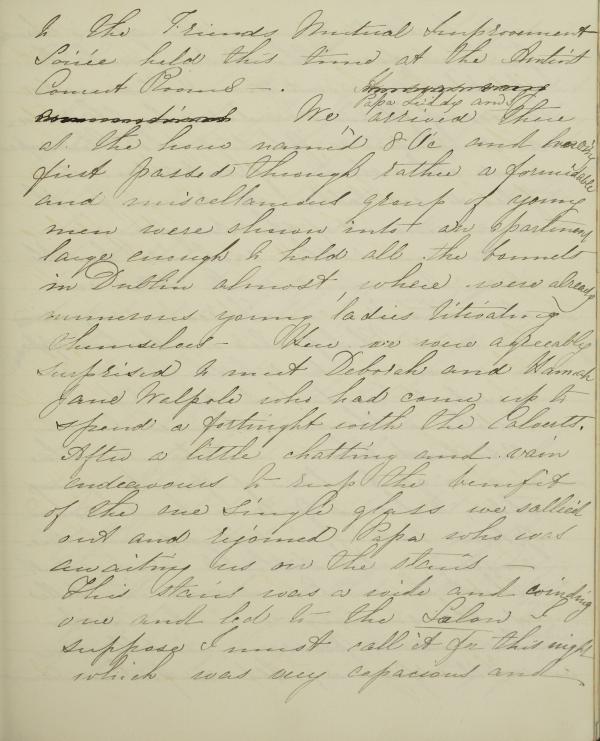 to the Friends Mutual Improvement
Soirée held this time at the Antient
Concert Rooms —.
Papa Liddy and I
We arrived there
at the hour named 8 O'c and having
first passed through rather a formidable
and miscellaneous group of young
men were shown into an apartment
large enough to hold all the bonnets
in Dublin almost, where were already
numerous young ladies titivating
themselves — Here we were agreeably
surprised to meet Deborah and Hannah
Jane Walpole who had come up to
spend a fortnight with the Calverts.
After a little chatting and vain
endeavours to reap the benefit
of the one single glass we sallied
out and rejoined Papa who was
awaiting us on the stairs —
This stairs was a wide and winding
one and led to the Salon I
suppose I must call it for this night
which was very capacious and